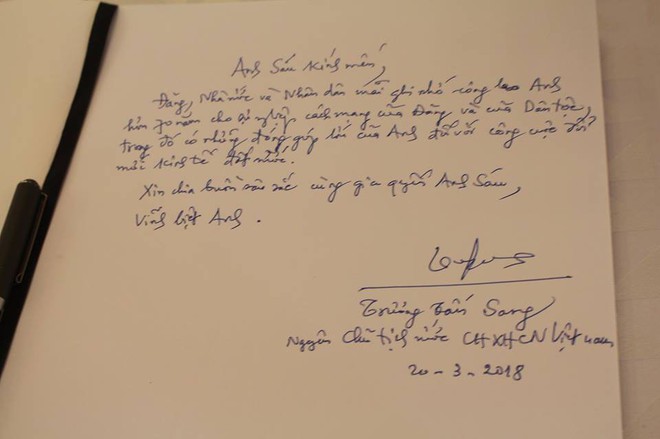 Anh Sáu Kính mến,
Đảng, Nhà nước và Nhân dân mãi ghi nhớ công lao Anh
hơn 70 năm cho sự nghiệp cách mạng của Đảng và của Dân tộc,
trong đó có những đóng góp lớn của Anh đối với công cuộc đổi
mới Kinh tế đất nước.
Xin chia buồn sâu sắc cùng gia quyến Anh Sáu,
Vĩnh biệt Anh.
Trương Tấn Sang
Nguyên Chủ tịch nước CHXHCN Việt nam
20-3-2018